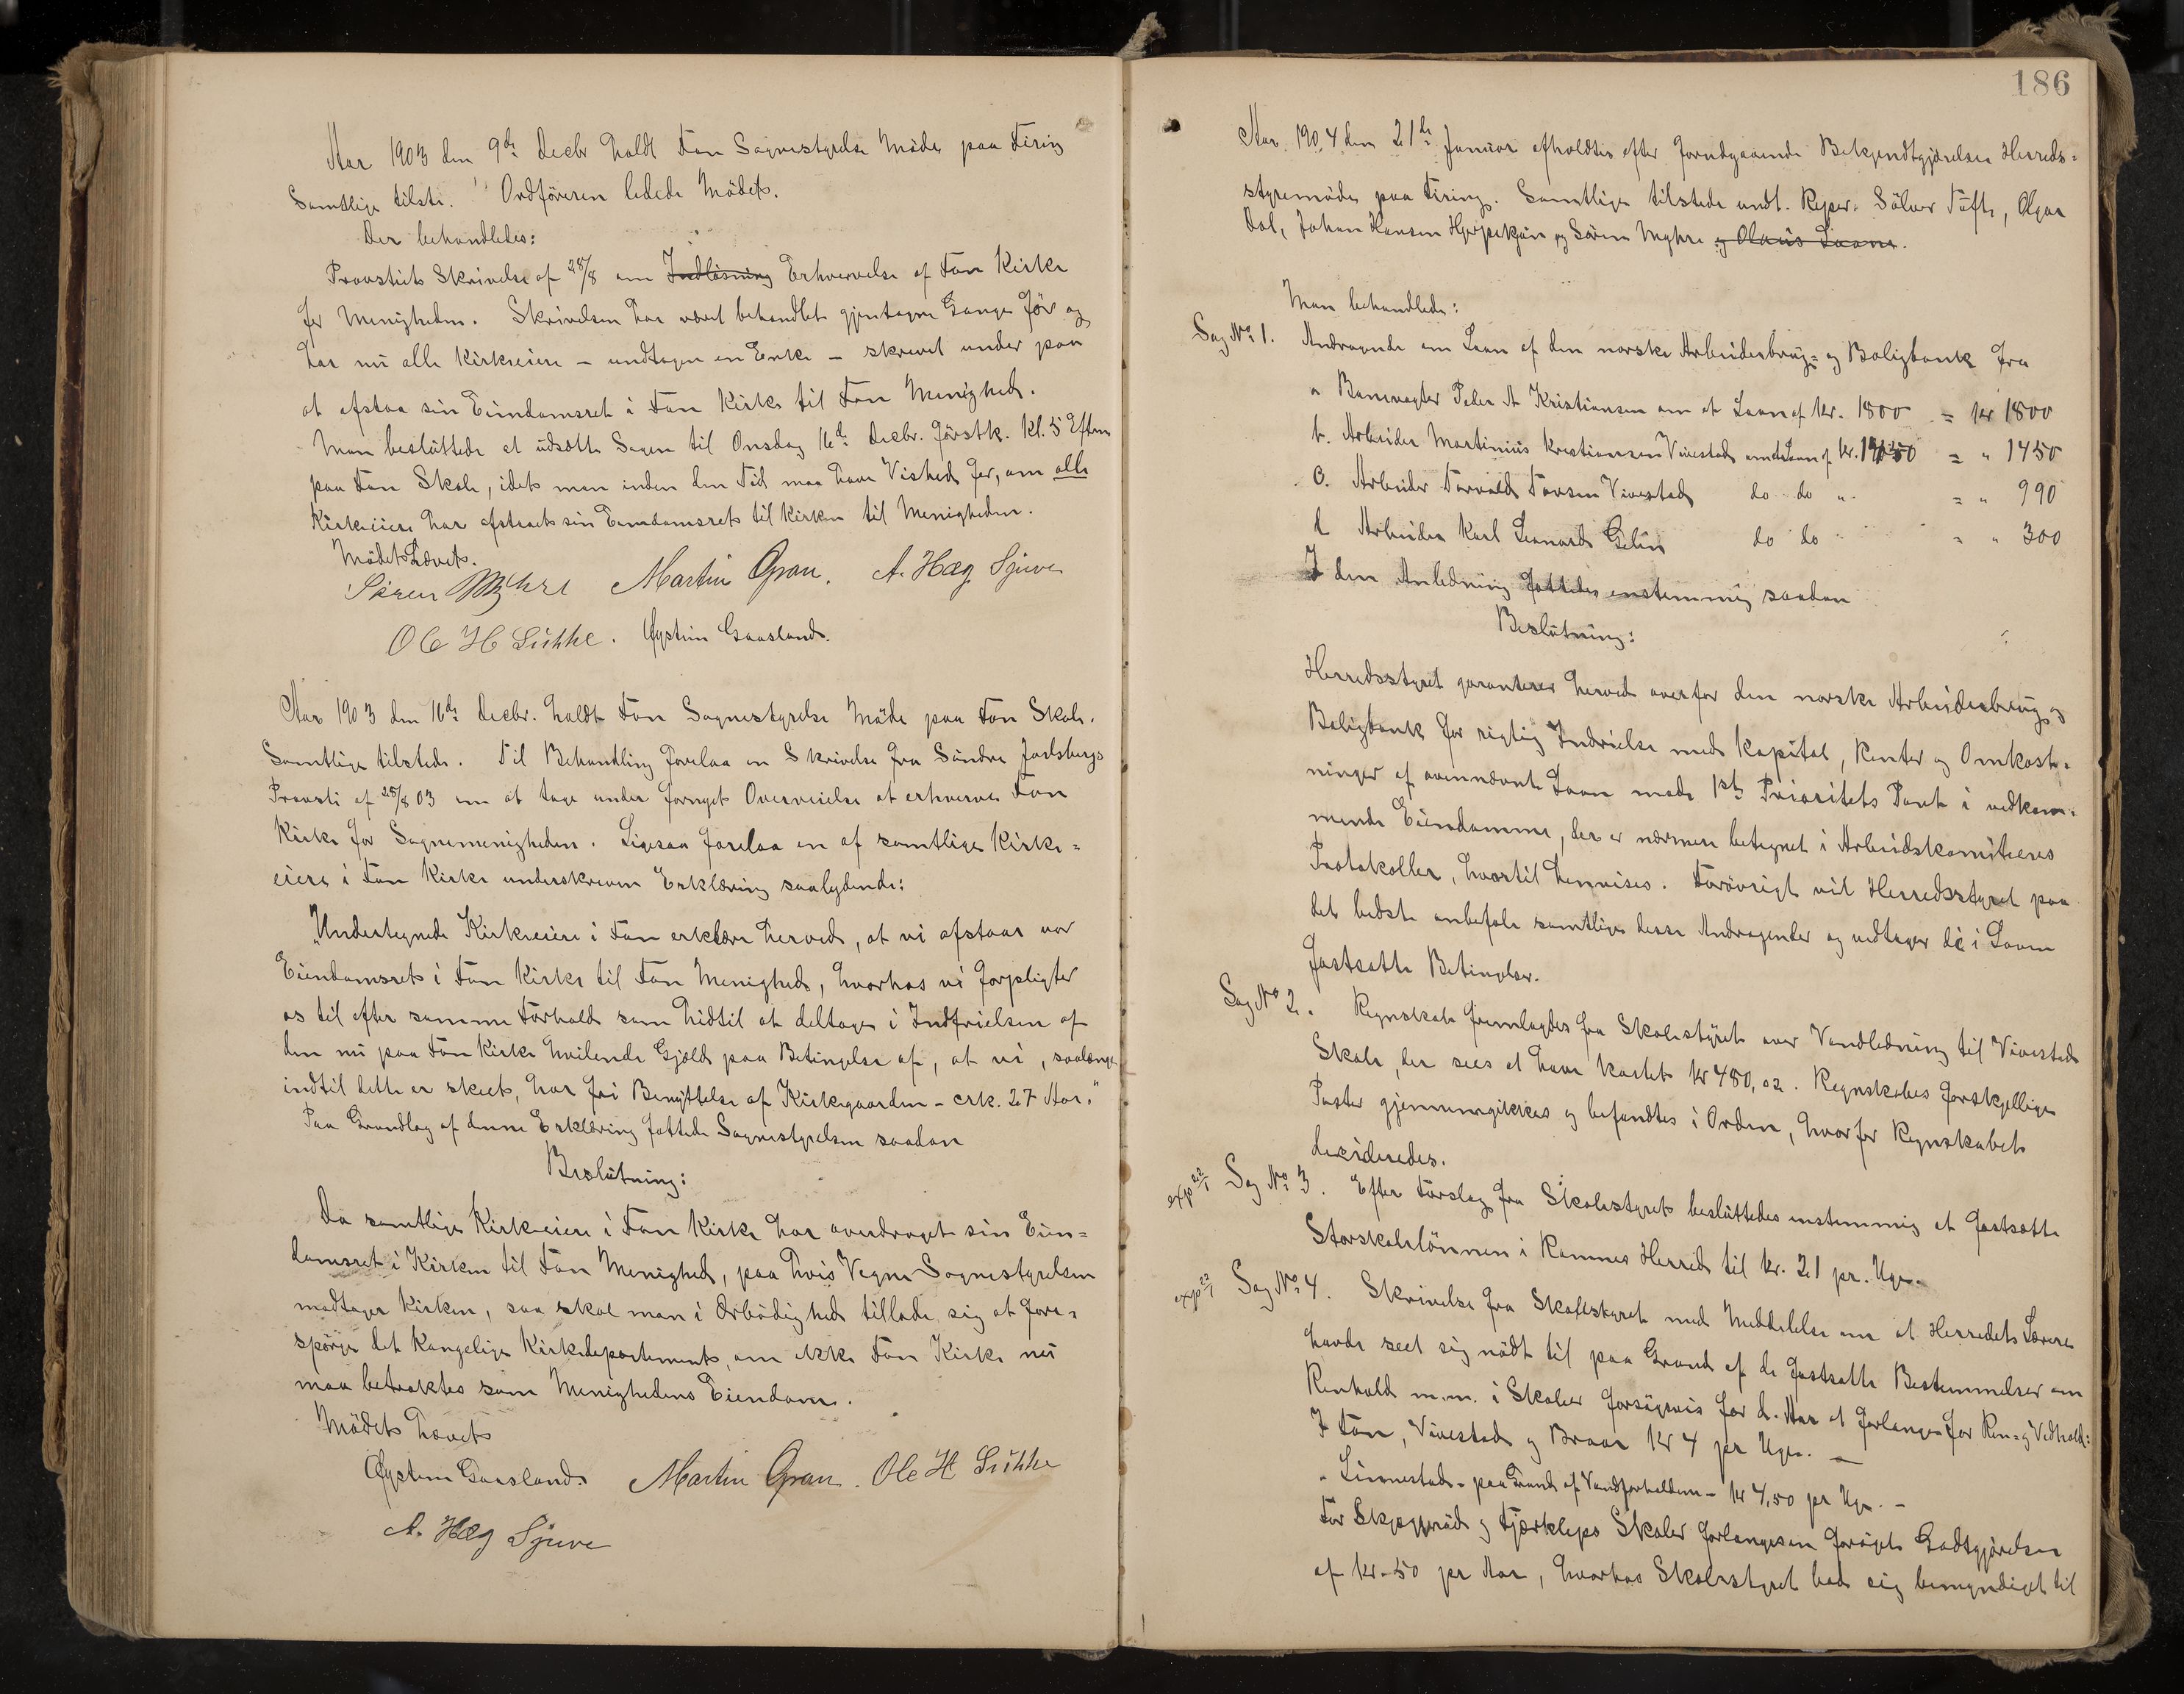 Aar 1903 den 9de Decbr holdt Fon Sognestyrelse Møde paa Firing
Samtlige tilste. Ordföreren ledede Mödet.
Der behandledes:
Provstiets Skrivelse af 28/8 om Indløsning Erhvervelse af Fon Kirke
for Menigheden. Skrivelsen har været behandlet gjentagne Gange för og
har nu alle Kirkeeiere – undtagen en Enke – skrevet under paa
at afstaa sin Eiendomsret i Fon Kirke til Fon Menighed.
Man besluttede at udsætte Sagen til Onsdag 16de Decbr. förstk. Kl. 5 Efterm
paa Fon Skole, idet man inden den Tid maa have Vished for, om alle
Kirkeeiere har afstaaet sin Eiendomsret til Kirken til Menigheden.
Mödet hævet.
Søren Myhre Martin Gran. A. Hæg Sjuve
Ole H Lühke. Øystein Gaasland.
Aar 1903 den 16de Decbr. holdt Fon Sognestyrelse Möde paa Fon Skole.
Samtlige tilstede. Til Behandling forelaa en Skrivelse fra Söndre Jarlsbergs
Provsti af 28/8 03 om at tage under fornyet Overveielse at erhverve Fon
Kirke for Sognemenigheden. Ligesaa forelaa en af samtlige Kirke=
eiere i Fon Kirke underskreven Erklæring saalydende:
"Undertegnede Kirkeeiere i Fon erklærer herved, at vi afstaar vor
Eiendomsret i Fon Kirke til Fon Menighed, hvorhos vi forpligter
os til efter samme Forhold som hidtil at deltage i Indfrielsen af
den nu paa Fon Kirke hvilende Gjæld paa Betingelse af, at vi, saalænge
indtil dette er skeet, har fri Benyttelse af Kirkegaarden – crk. 27 Aar."
Paa Grundlag af denne Erklæring fattede Sognestyrelsen saadan
Beslutning:
Da samtlige Kirkeeiere i Fon Kirke har overdraget sin Eien=
domsret i Kirken til Fon Menighed, paa hvis Vegne Sognestyrelsen
modtager Kirken, saa skal man i Ærbödighed tillade sig at fore=
spørge det Kongelige Kirkedepartement, om ikke Fon Kirke nu
maa betraktes som Menighedens Eiendom.
Mödet hævet
Øystein Gaasland. Martin Gran. Ole H Lühke
A. Hæg Sjuve
186
Aar 1904 den 21de Januar afholdtes efter forudgaaende Bekjendtgjörelse Herreds=
styremöde paa Firing. Samtlige tilstede undt. Repr. Sölver Tufte, Olger
Dal, Johan Hansen og Sören Myhre og Olaus Laane.
Man behandlede:
Sag No 1. Andragende om Laan af den norske Arbeiderbrug= og Boligbank fra
a Banevogter Peder A Kristiansen om et Laan af kr. 1800 = kr 1800
b. Arbeider Martinius Kristiansen Vivestad om et Laan af kr. 1450 = " 1450
c. Arbeider Torvald Torsen Vivestad do do " = " 990
d Arbeider Karl Leonard Gelin do do " = " 300
I den Anledning fattedes enstemmig saadan
Beslutning:
Herredsstyret garanterer herved overfor den norske Arbeiderbrug og
Boligbank for rigtig Indfrielse med Kapital, Renter og Omkost=
ninger af ovennævnte Laan mode 1ste Prioritets Pant i vedkom=
mende Eiendomme, der er nærmere betegnet i Arbeidskomiteens
Protokoller, hvortil henvises. Forövrigt vil Herredsstyret paa
det bedste anbefale samtlige disse Andragender og vedtager de i Loven
fastsatte Betingelser.
Sag No 2. Regnskab fremlagdes fra Skolestyret over Vandledning til Vivestad
Skole, der sees at have kostet kr 480,02. Regnskabets forskjellige
Poster gjennemgikkes og befandtes i Orden, hvorfor Regnskabet
desideredes.
exp 22/1 Sag No 3. Efter Forslag fra Skolestyret besluttedes enstemmig at fastsætte
Storskolelönnen i Ramnes Herred til kr. 21 pr. Uge.
exp 22/1 Sag No 4. Skrivelse fra Skolestyret med Meddelelse om at Herredets Lærere
havde seet sig nödt til paa Grund af de fastsatte Bestemmelser om
Renhold m.m. i Skoler forsögsvis for d. Aar at forlange for Ren- og Vedhold:
I Fon, Vivestad og Braar kr 4 pr Uge. –
" Linnestad – paa Grund af Vandforholdene – kr 4,50 pr Uge. –
For og Fjærkleps Skoler forlanges en forøget Godtgjörelse
af kr. 50 pr Aar, hvorhos Skolestyret bad sig bemyndiget til